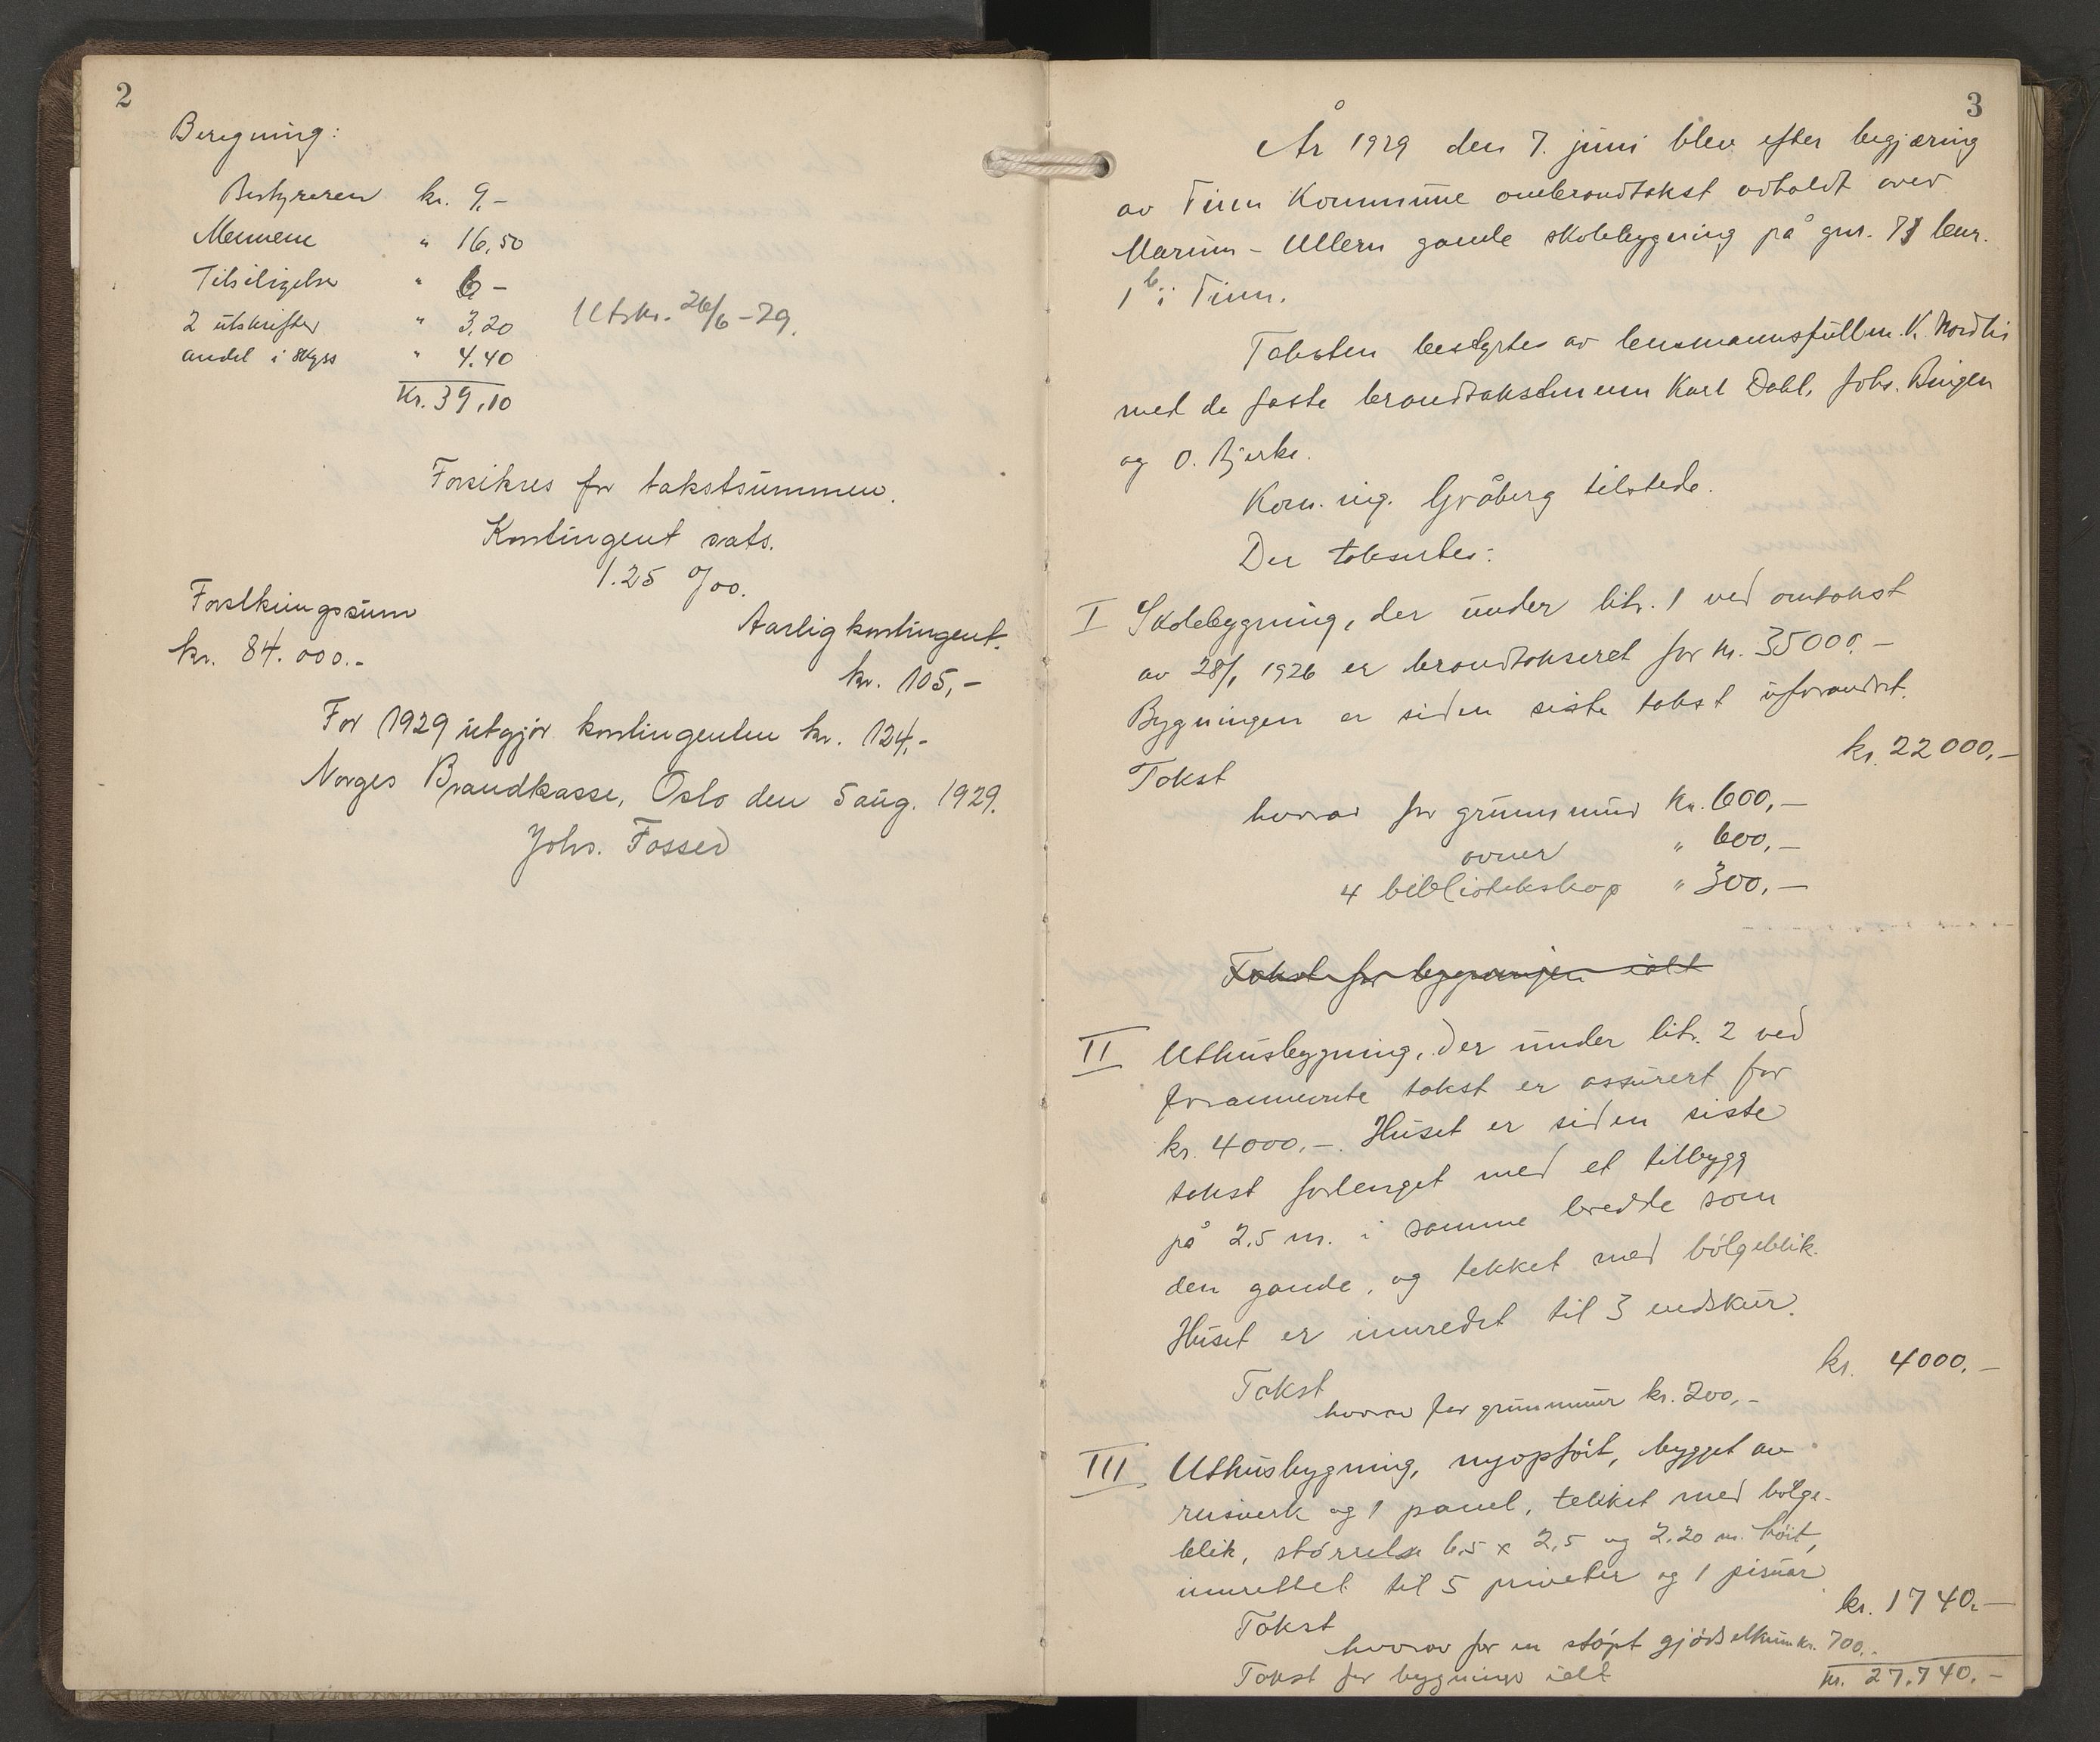 2
Beregning:
Bestyreren kr. 9,-
Mennene " 16,50
Tilsigelse " 6 -
2 utskrifter " 3,20
andel i skyss " 4.40
Kr. 39,10
Utskr. 26/6 - 29.
Forsikres for takstsummen.
Kontingent sats.
1.25 0/00.
Forsikringssum
kr. 84.000.-
Aarlig kontingent.
kr. 105,-
For 1929 utgjør kontingenten kr. 124,-
Norges Brandkasse, Oslo den 5 aug. 1929.
Johs. Fosser
3
År 1929 den 7. juni blev efter begjæring
av Tinn Kommune ombrandtakst avholdt over
Marum - Ullern gamle skolebygning på gnr. 73 bnr.
1 b i Tinn.
Taksten bestyrtes av lensmannsfullm. K. Nordli
med de faste brandtakstmenn Karl Dahl, Johs. Bingen
og O. Bjerke.
Kom. ing. Gråberg tilstede.
Der taksertes:
I Skolebygning, der under litr. 1 ved omtakst
av 28/1 1926 er brandtakseret for kr. 35000.-
Bygningen er siden siste takst uforandret.
Takst kr. 22000,-
hvorav for grunnmur Kr. 600,-
ovner " 600,-
4 bibliotekskap " 300,-
Takst for bygningen ialt
II Uthusbygning, der under litr. 2 ved
forannevnte takst er assurert for
kr. 4000,-. Huset er siden siste
takst forlenget med et tilbygg
på 2,5 m. i samme bredde som
den gamle, og tekket med bølgeblik.
Huset er innredet til 3 vedskur.
Takst kr. 4000,-
hvorav for grunnmur kr. 200,-
III Uthusbygning, nyopført, bygget av
reisverk og 1 panel, tekket med bølge-
blik, størrelse 6,5 x 2,5 og 2.20 m. høit,
innrettet til 5 priveter og 1 pisoar
Takst kr. 1740.-
hvorav for en støpt gjødselkum kr. 700,-
Takst for bygninge ialt kr. 27.740.-